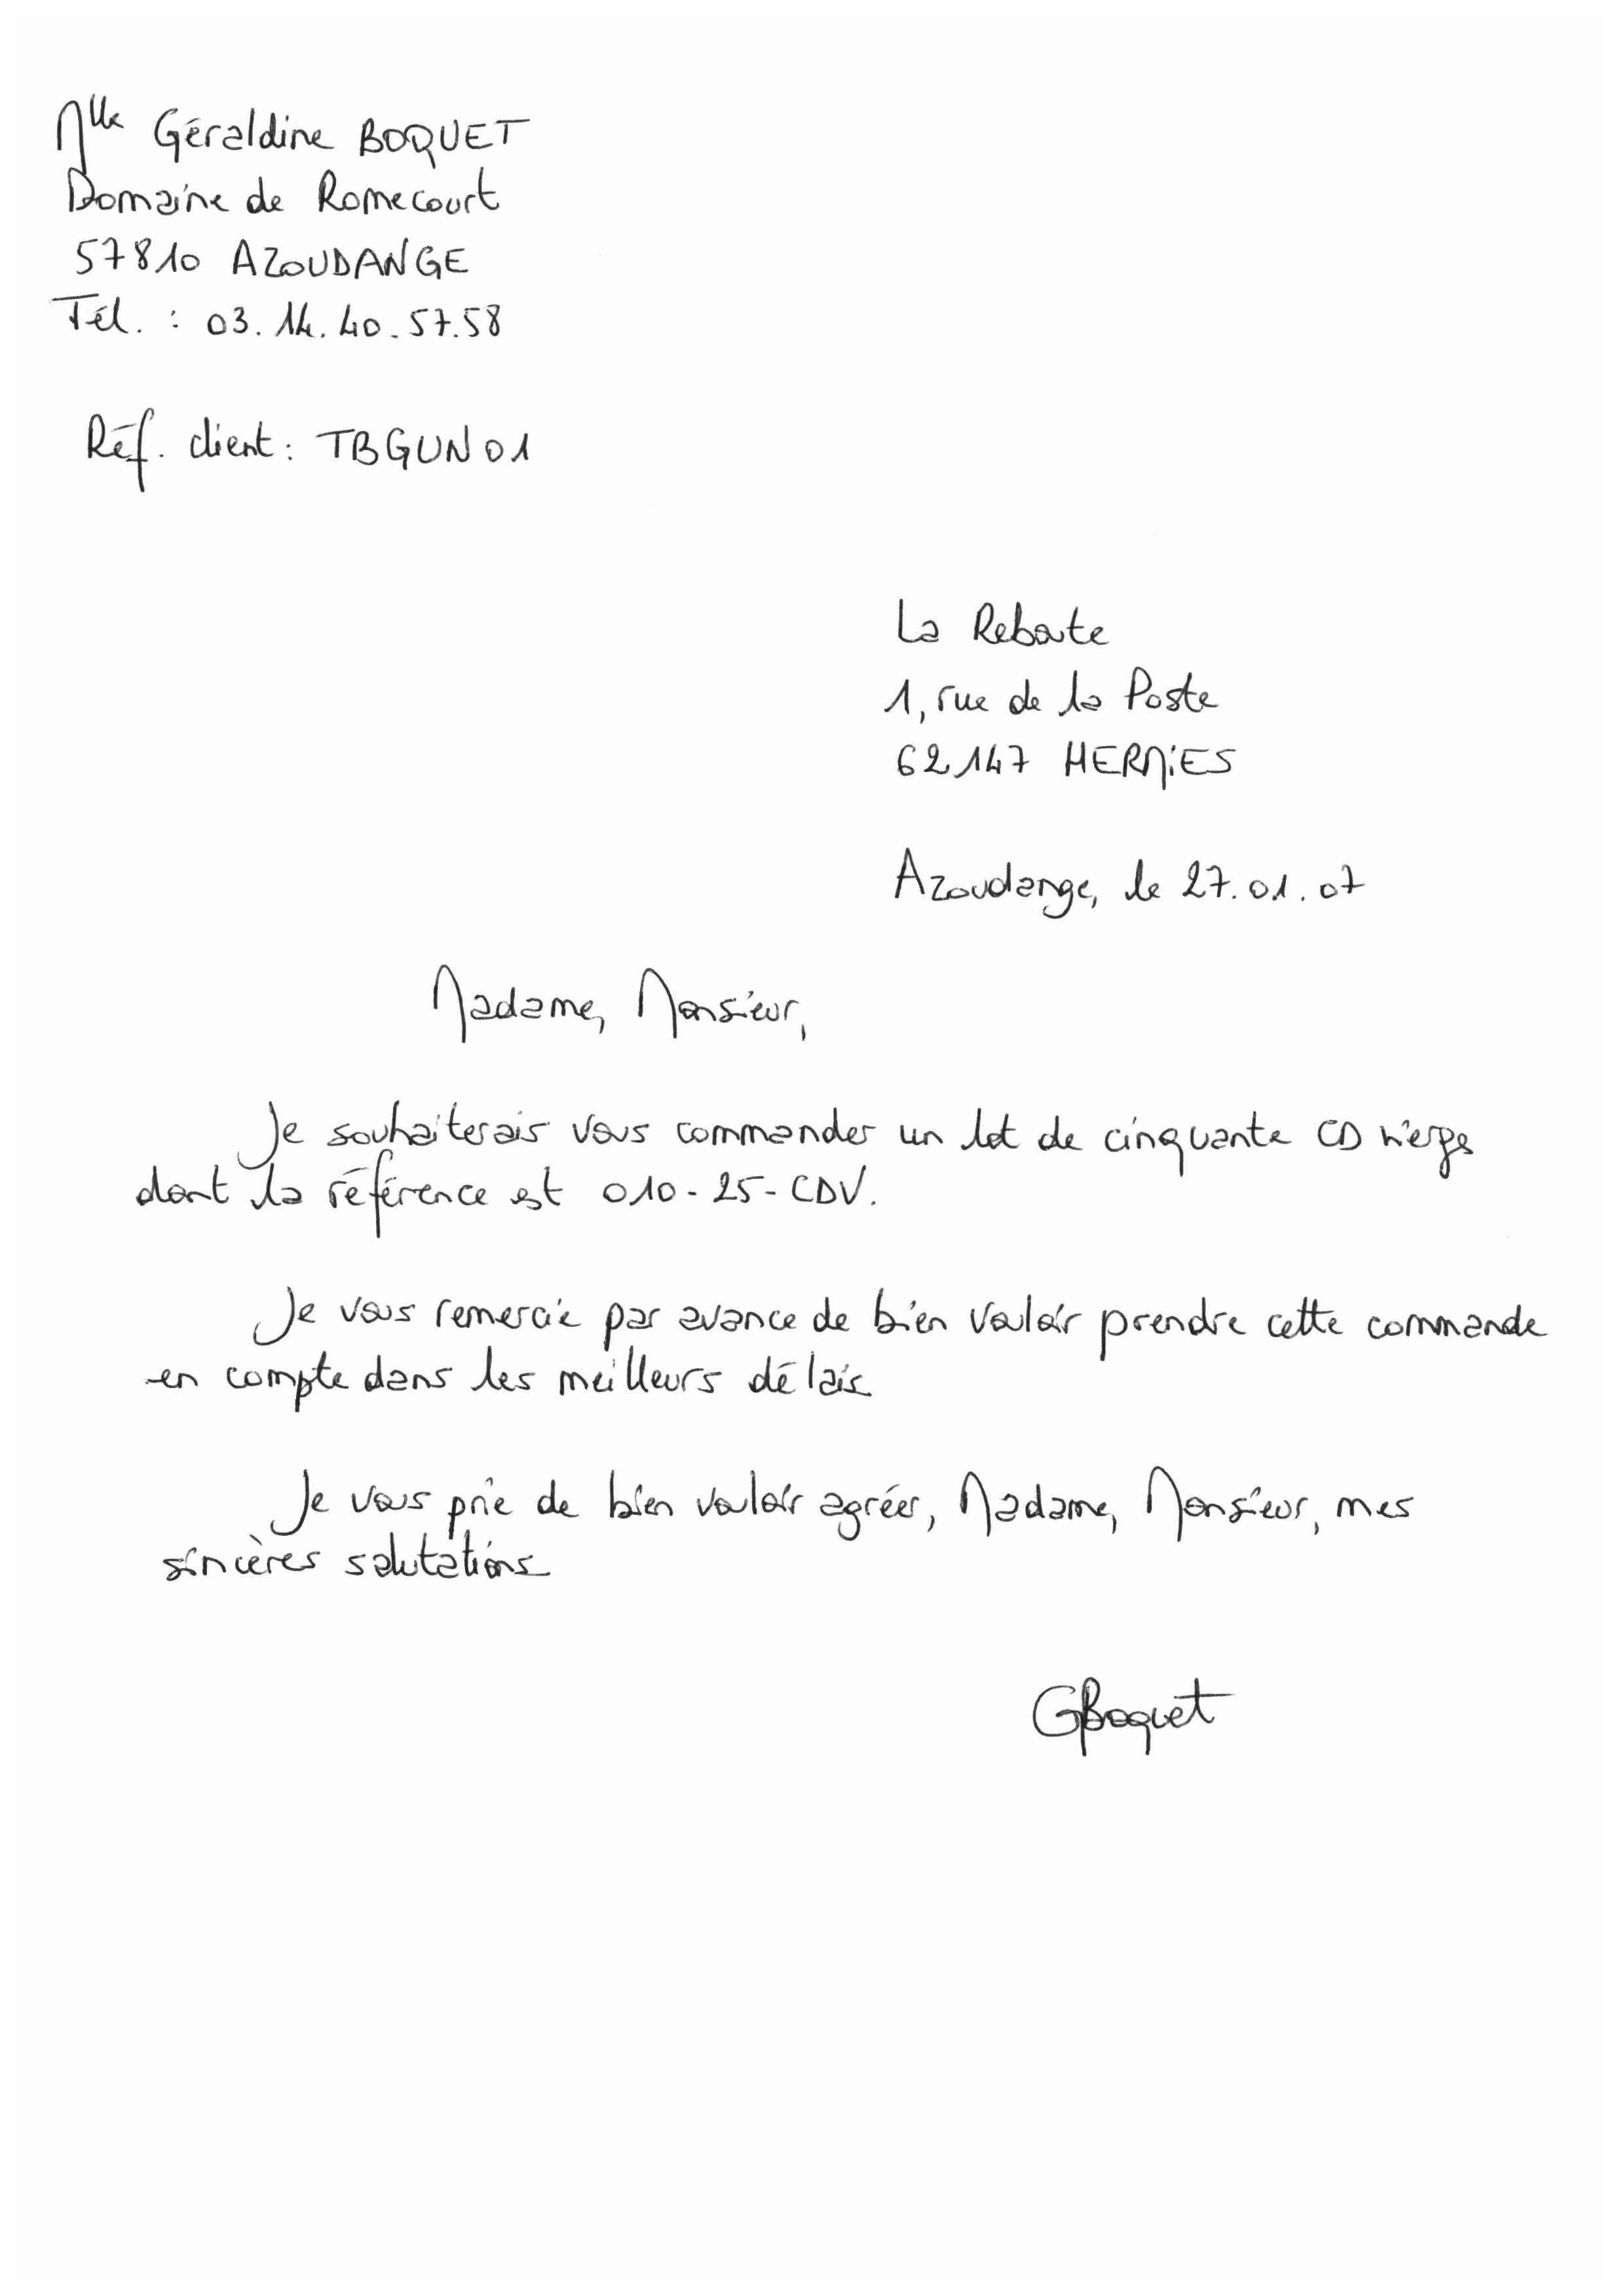 Mlle Géraldine BOQUET
Domaine de Romecourt
57810 AZOUDANGE
Tél. : 03.14.40.57.58
Réf. client : TBGUN01
La Reboute
1, rue de la Poste
62147 HERMiES
Azoudange, le 27.01.07
Madame, Monsieur,
Je souhaiterais vous commander un lot de cinquante CD vierges
dont la référence est 010-25-CDV.
Je vous remercie par avance de bien vouloir prendre cette commande
en compte dans les meilleurs délais.
Je vous prie de bien vouloir agréer, Madame, Monsieur, mes
sincères salutations.
GBoquet